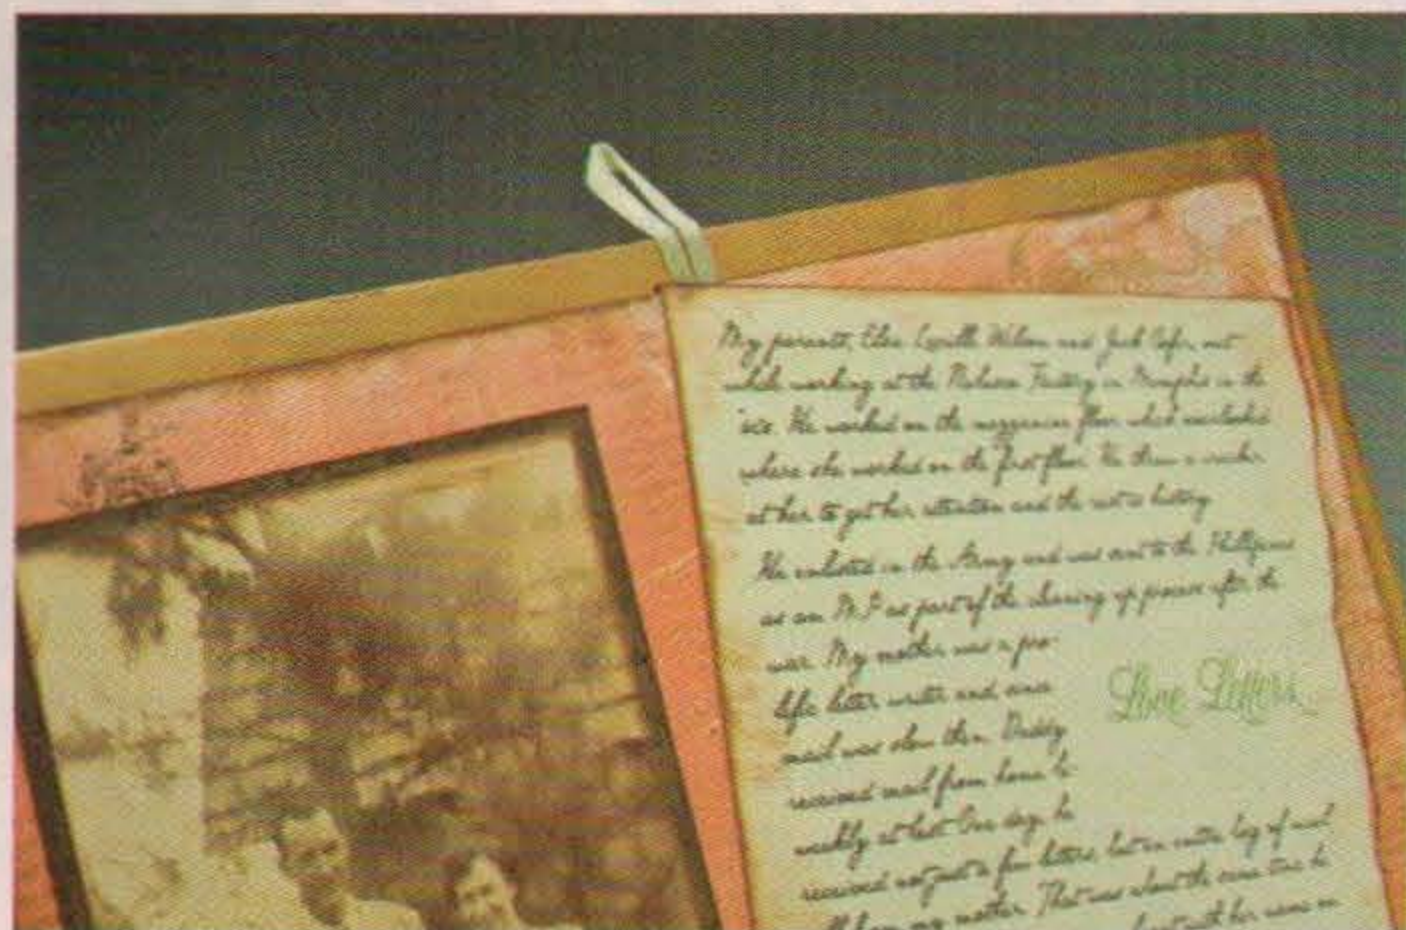 My parents, Elsie Lucille Wilson and Jack Cofer, met
while working at the Factory in Memphis in the
He worked on the mezzanine floor which overlooked
where she worked on the first floor. He threw a
at her to get her attention and the rest is history
He enlisted in the Army and was sent to the Phillipines
as an M.P. as part of the cleaning up process after the
war. My mother was a pro-
lific letter writer and since
mail was slow then, Daddy
received mail from home bi-
weekly at best. One day, he
received not just a few letters, but an entire bag of mail
all from my mother. That was about the same time he
with her name on
Love Letters